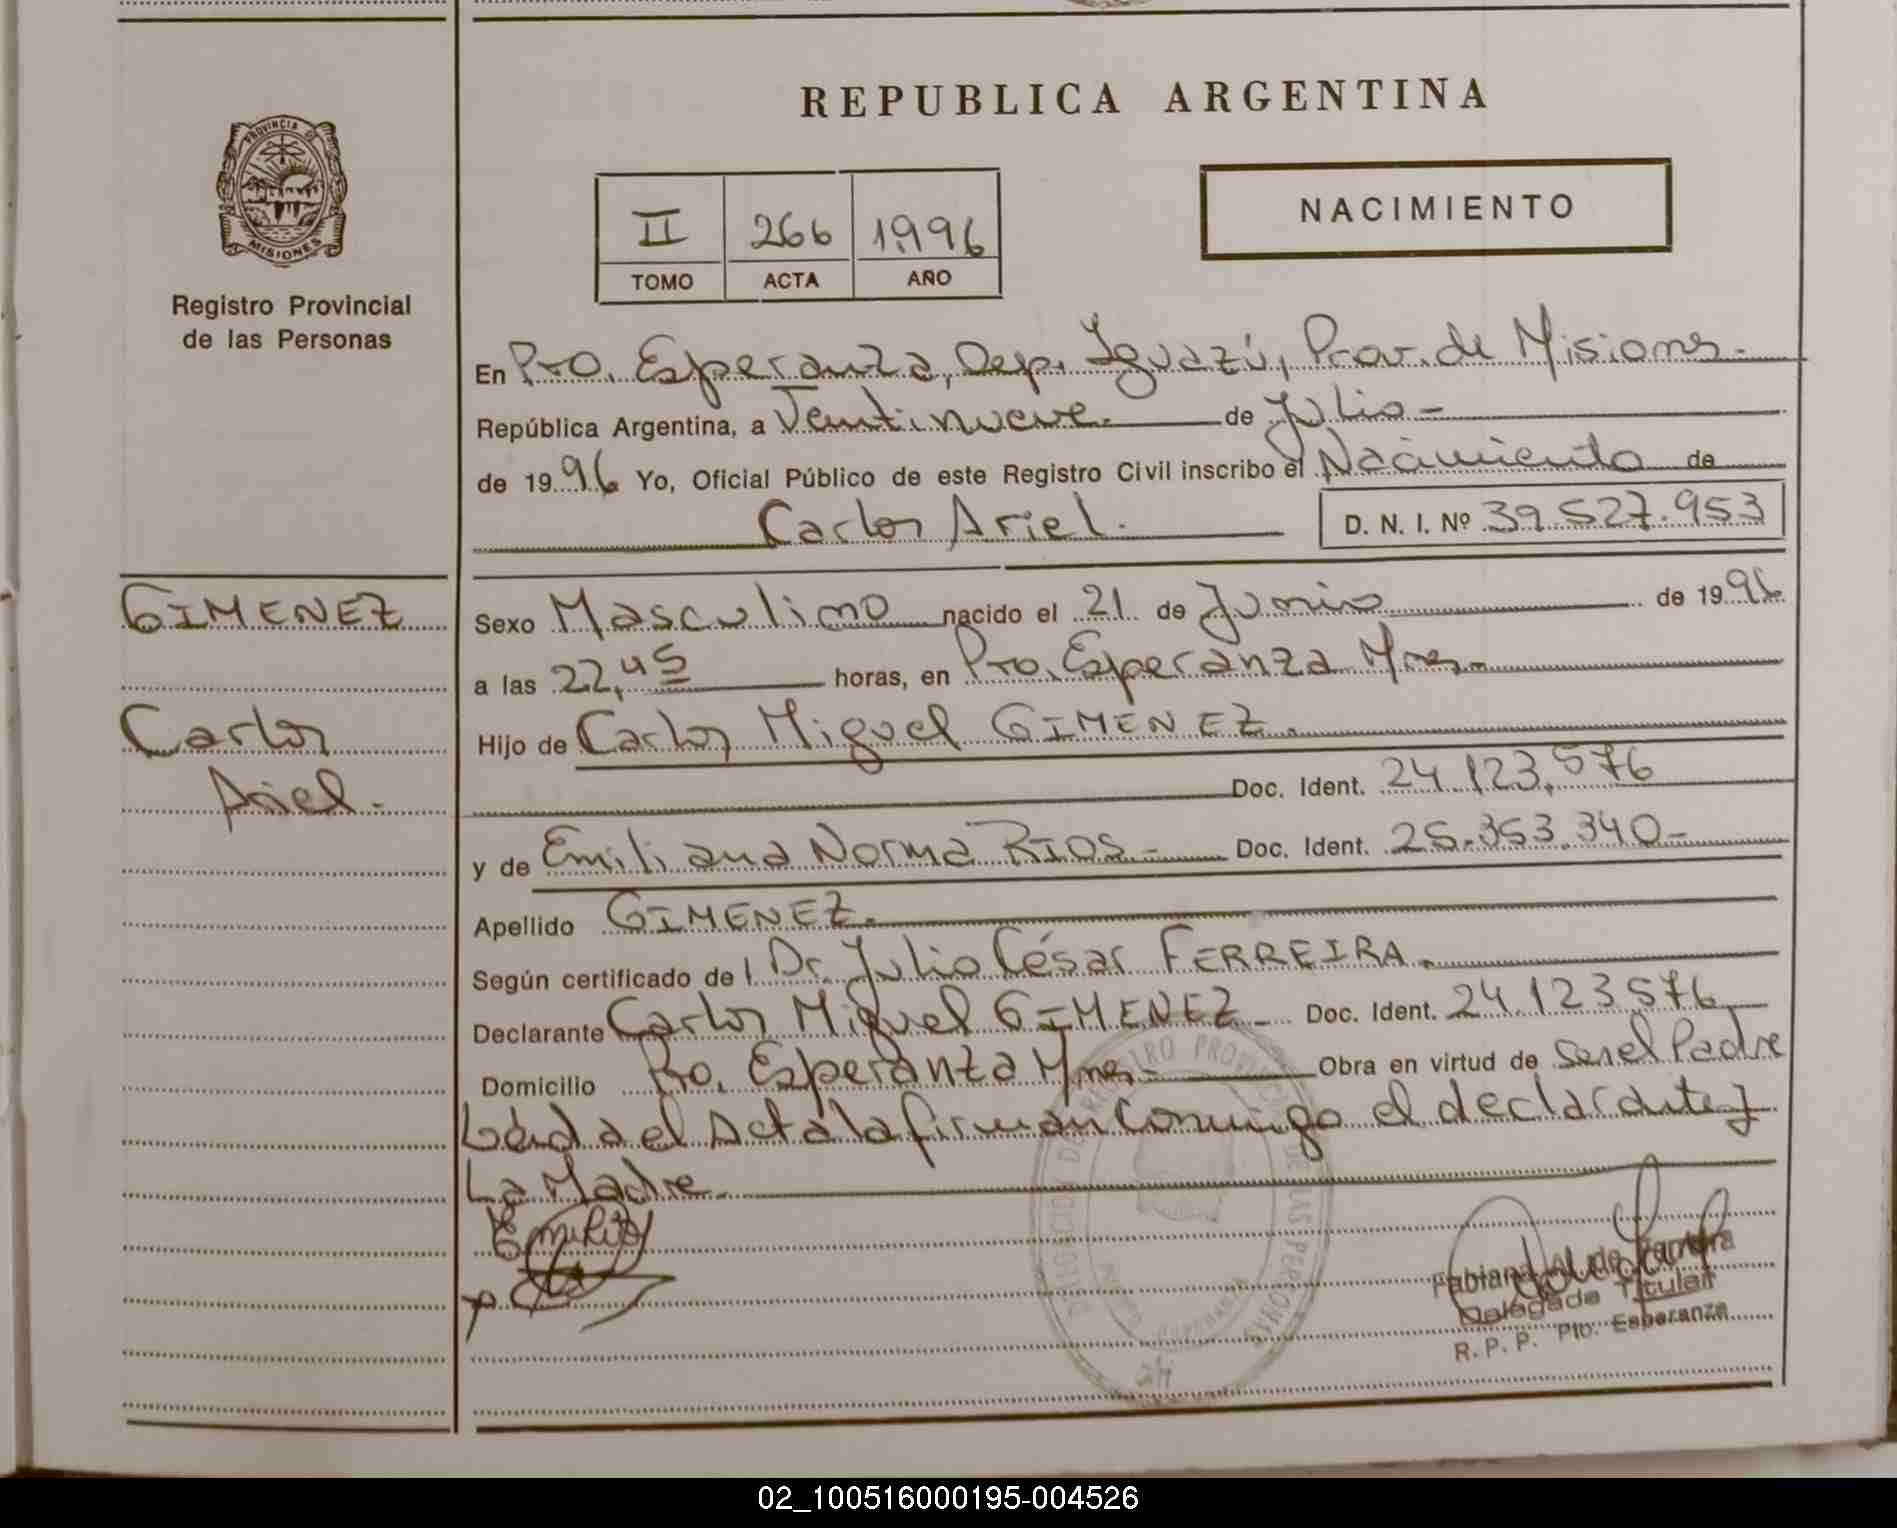 PROVINCIA DE
MISIONES
Registro Provincial
de las Personas
GIMENEZ
Carlos
Ariel.-
REPUBLICA ARGENTINA
II 266 1996
TOMO ACTA AÑO
NACIMIENTO
En Pto. Esperanza, Dep. Iguazú, Prov. de Misiones.-
República Argentina, a Ventinueve.- de Julio-
de 1996 Yo, Oficial Público de este Registro Civil inscribo el Nacimiento de
Carlos Ariel. D. N. I. Nº 39.527.953
Sexo Masculino nacido el 21 de Junio de 1996
a las 22,45 horas, en Pto. Esperanza Mnes.-
Hijo de Carlos Miguel GIMENEZ.
Doc. Ident. 24.123.576
y de Emiliana Norma RIOS.- Doc. Ident. 25.353.340-
Apellido GIMENEZ.
Según certificado de l Dr. Julio César FERREIRA.
Declarante Carlos Miguel GIMENEZ- Doc. Ident. 24.123576
Domicilio Pto. Esperanza Mnes- Obra en virtud de Ser el Padre
Leída el Acta la firman conmigo el declarante y
La Madre.
Delegada Titular
R. P. P. Pto. Esperanza
02_100516000195-004526